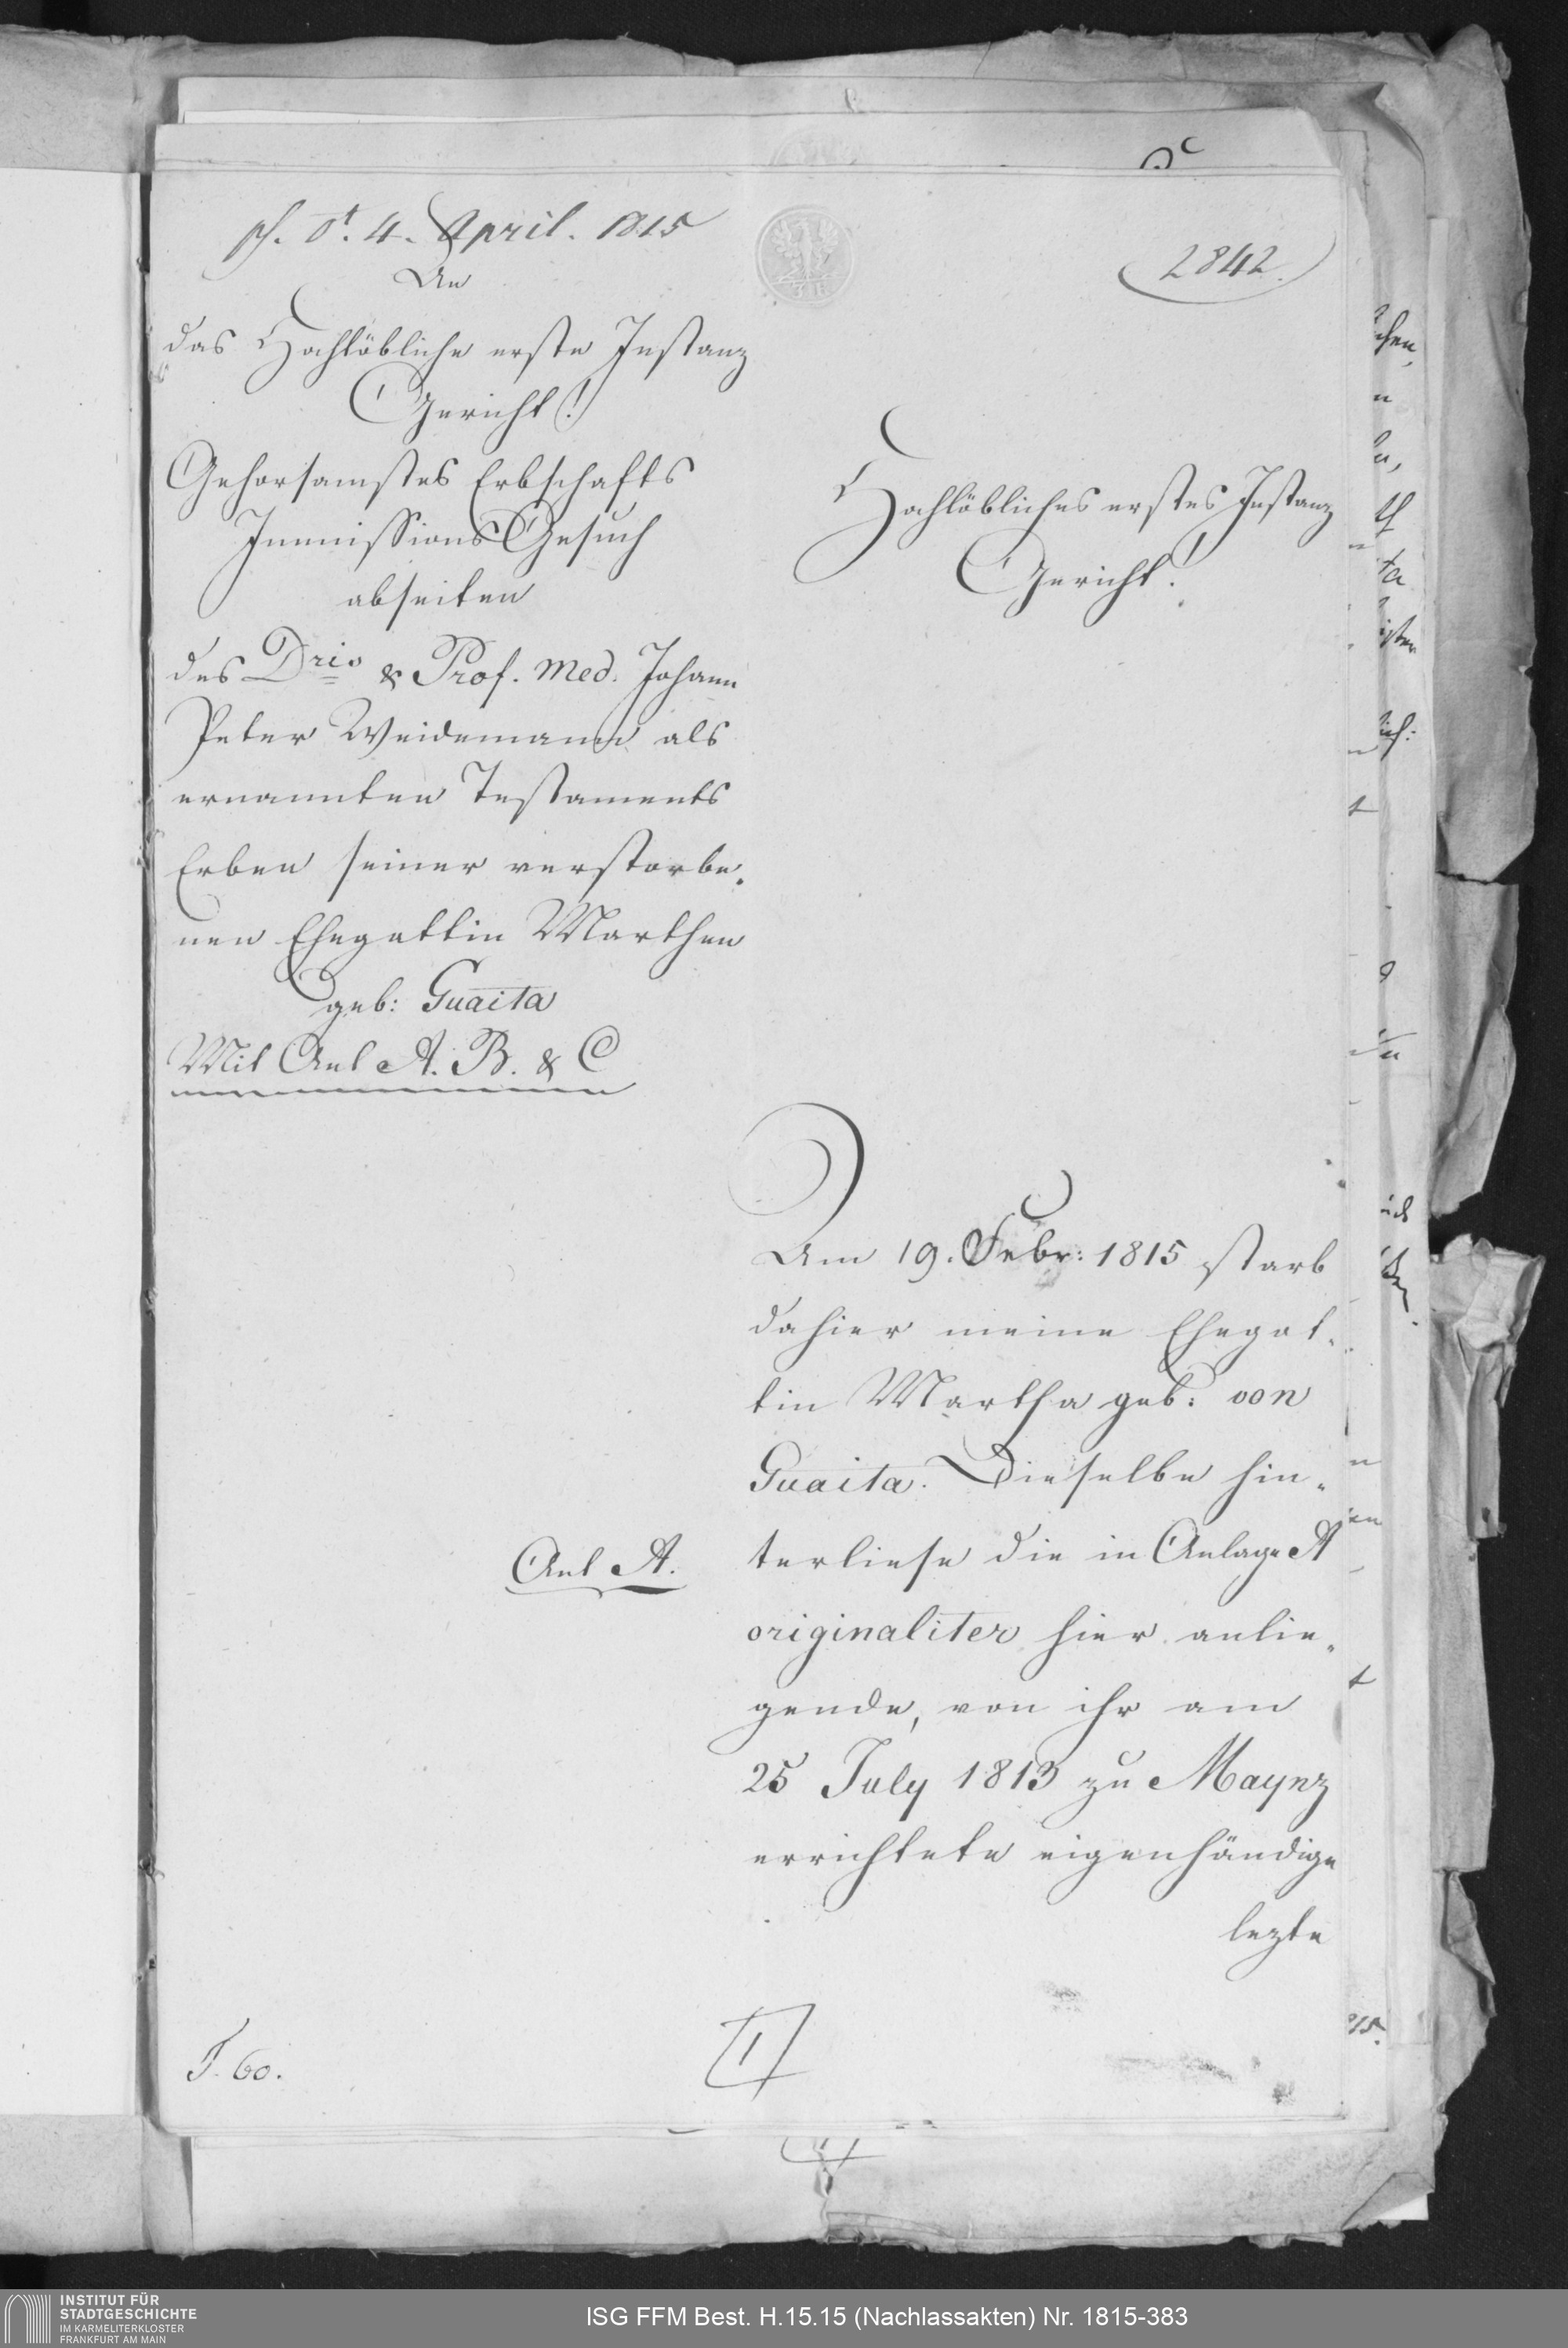 ps. d. 4. April. 1815
2842.
An
das Hochlöbliche erste Instanz
Gericht!
Gehorsamstes Erbschafts
Immissions Gesuch
abseiten
des Dris & Prof. Med. Johann
Peter Weidemann als
ernannten Testaments
Erben seiner verstorbe„
nen Ehegattin Marthen
geb: Guaita
Mit Anl A. B. & C
Hochlöbliches erstes Instanz
Gericht!
Am 19. Febr: 1815 starb
dahier meine Ehegat„
tin Martha geb: von
Guaita. Dieselbe hin„
Anl A.
terliese die in Anlage A
originaliter hier anlie„
gende, von ihr am
25 July 1813 zu Maynz
errichtete eigenhändige
lezte
T. 60.
1
INSTITUT FÜR
STADTGESCHICHTE
IM KARMELITERKLOSTER
FRANKFURT AM MAIN
ISG FFM Best. H.15.15 (Nachlassakten) Nr. 1815-383